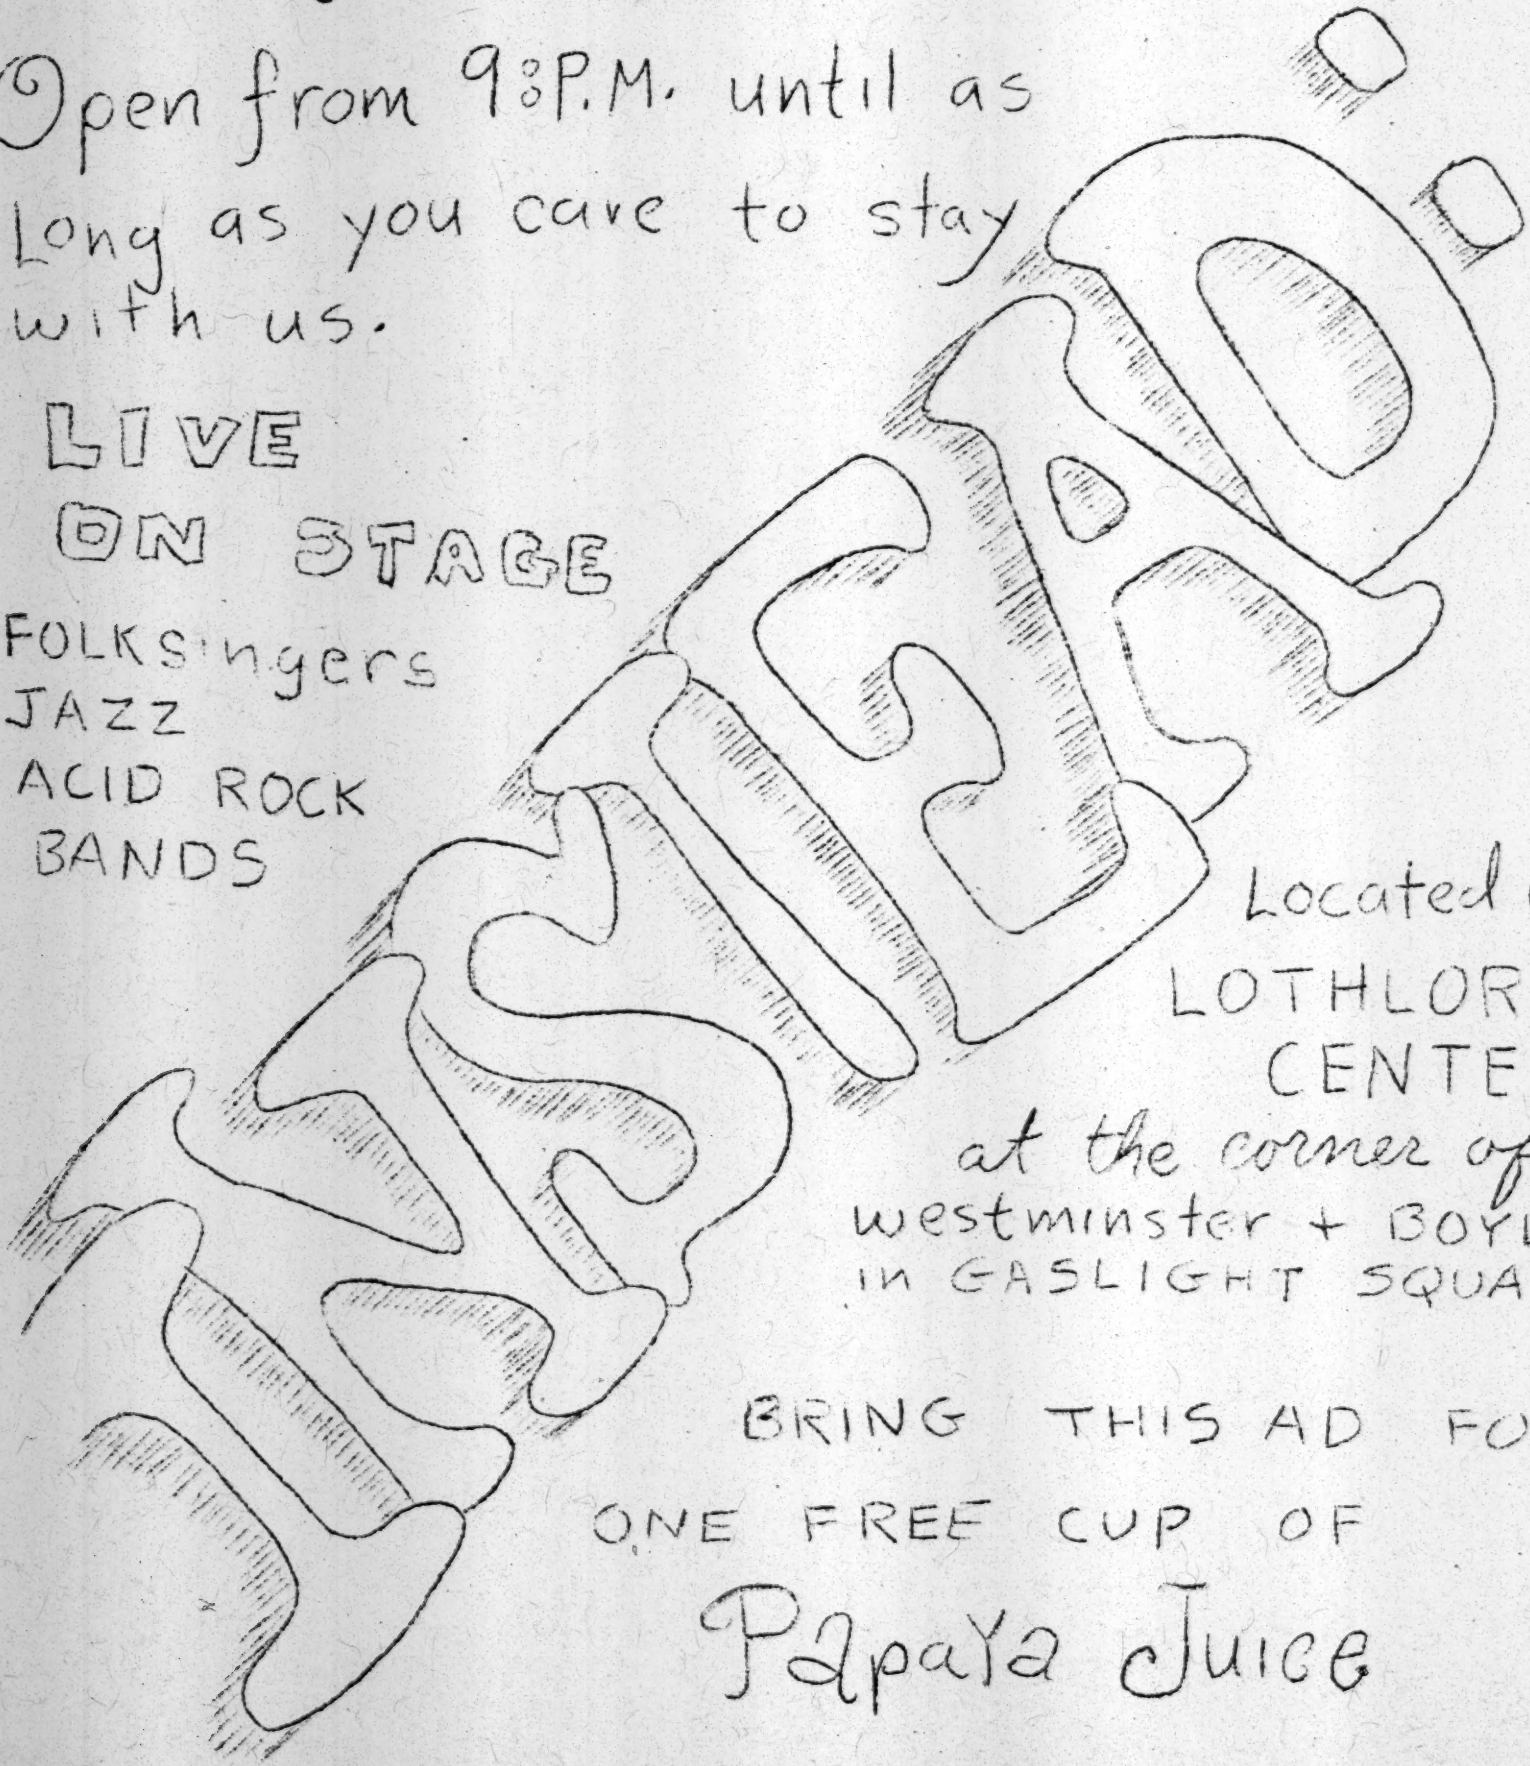 Open from 9:P.M. until as
Long as you care to stay
with us.
LIVE
ON STAGE
FOLKSingers
JAZZ
ACID ROCK
BANDS
Located
LOTHLOR
CENTE
at the corner of
westminster + BOYL
in GASLIGHT SQUA
BRING THIS AD FO
ONE FREE CUP OF
Papaya Juice